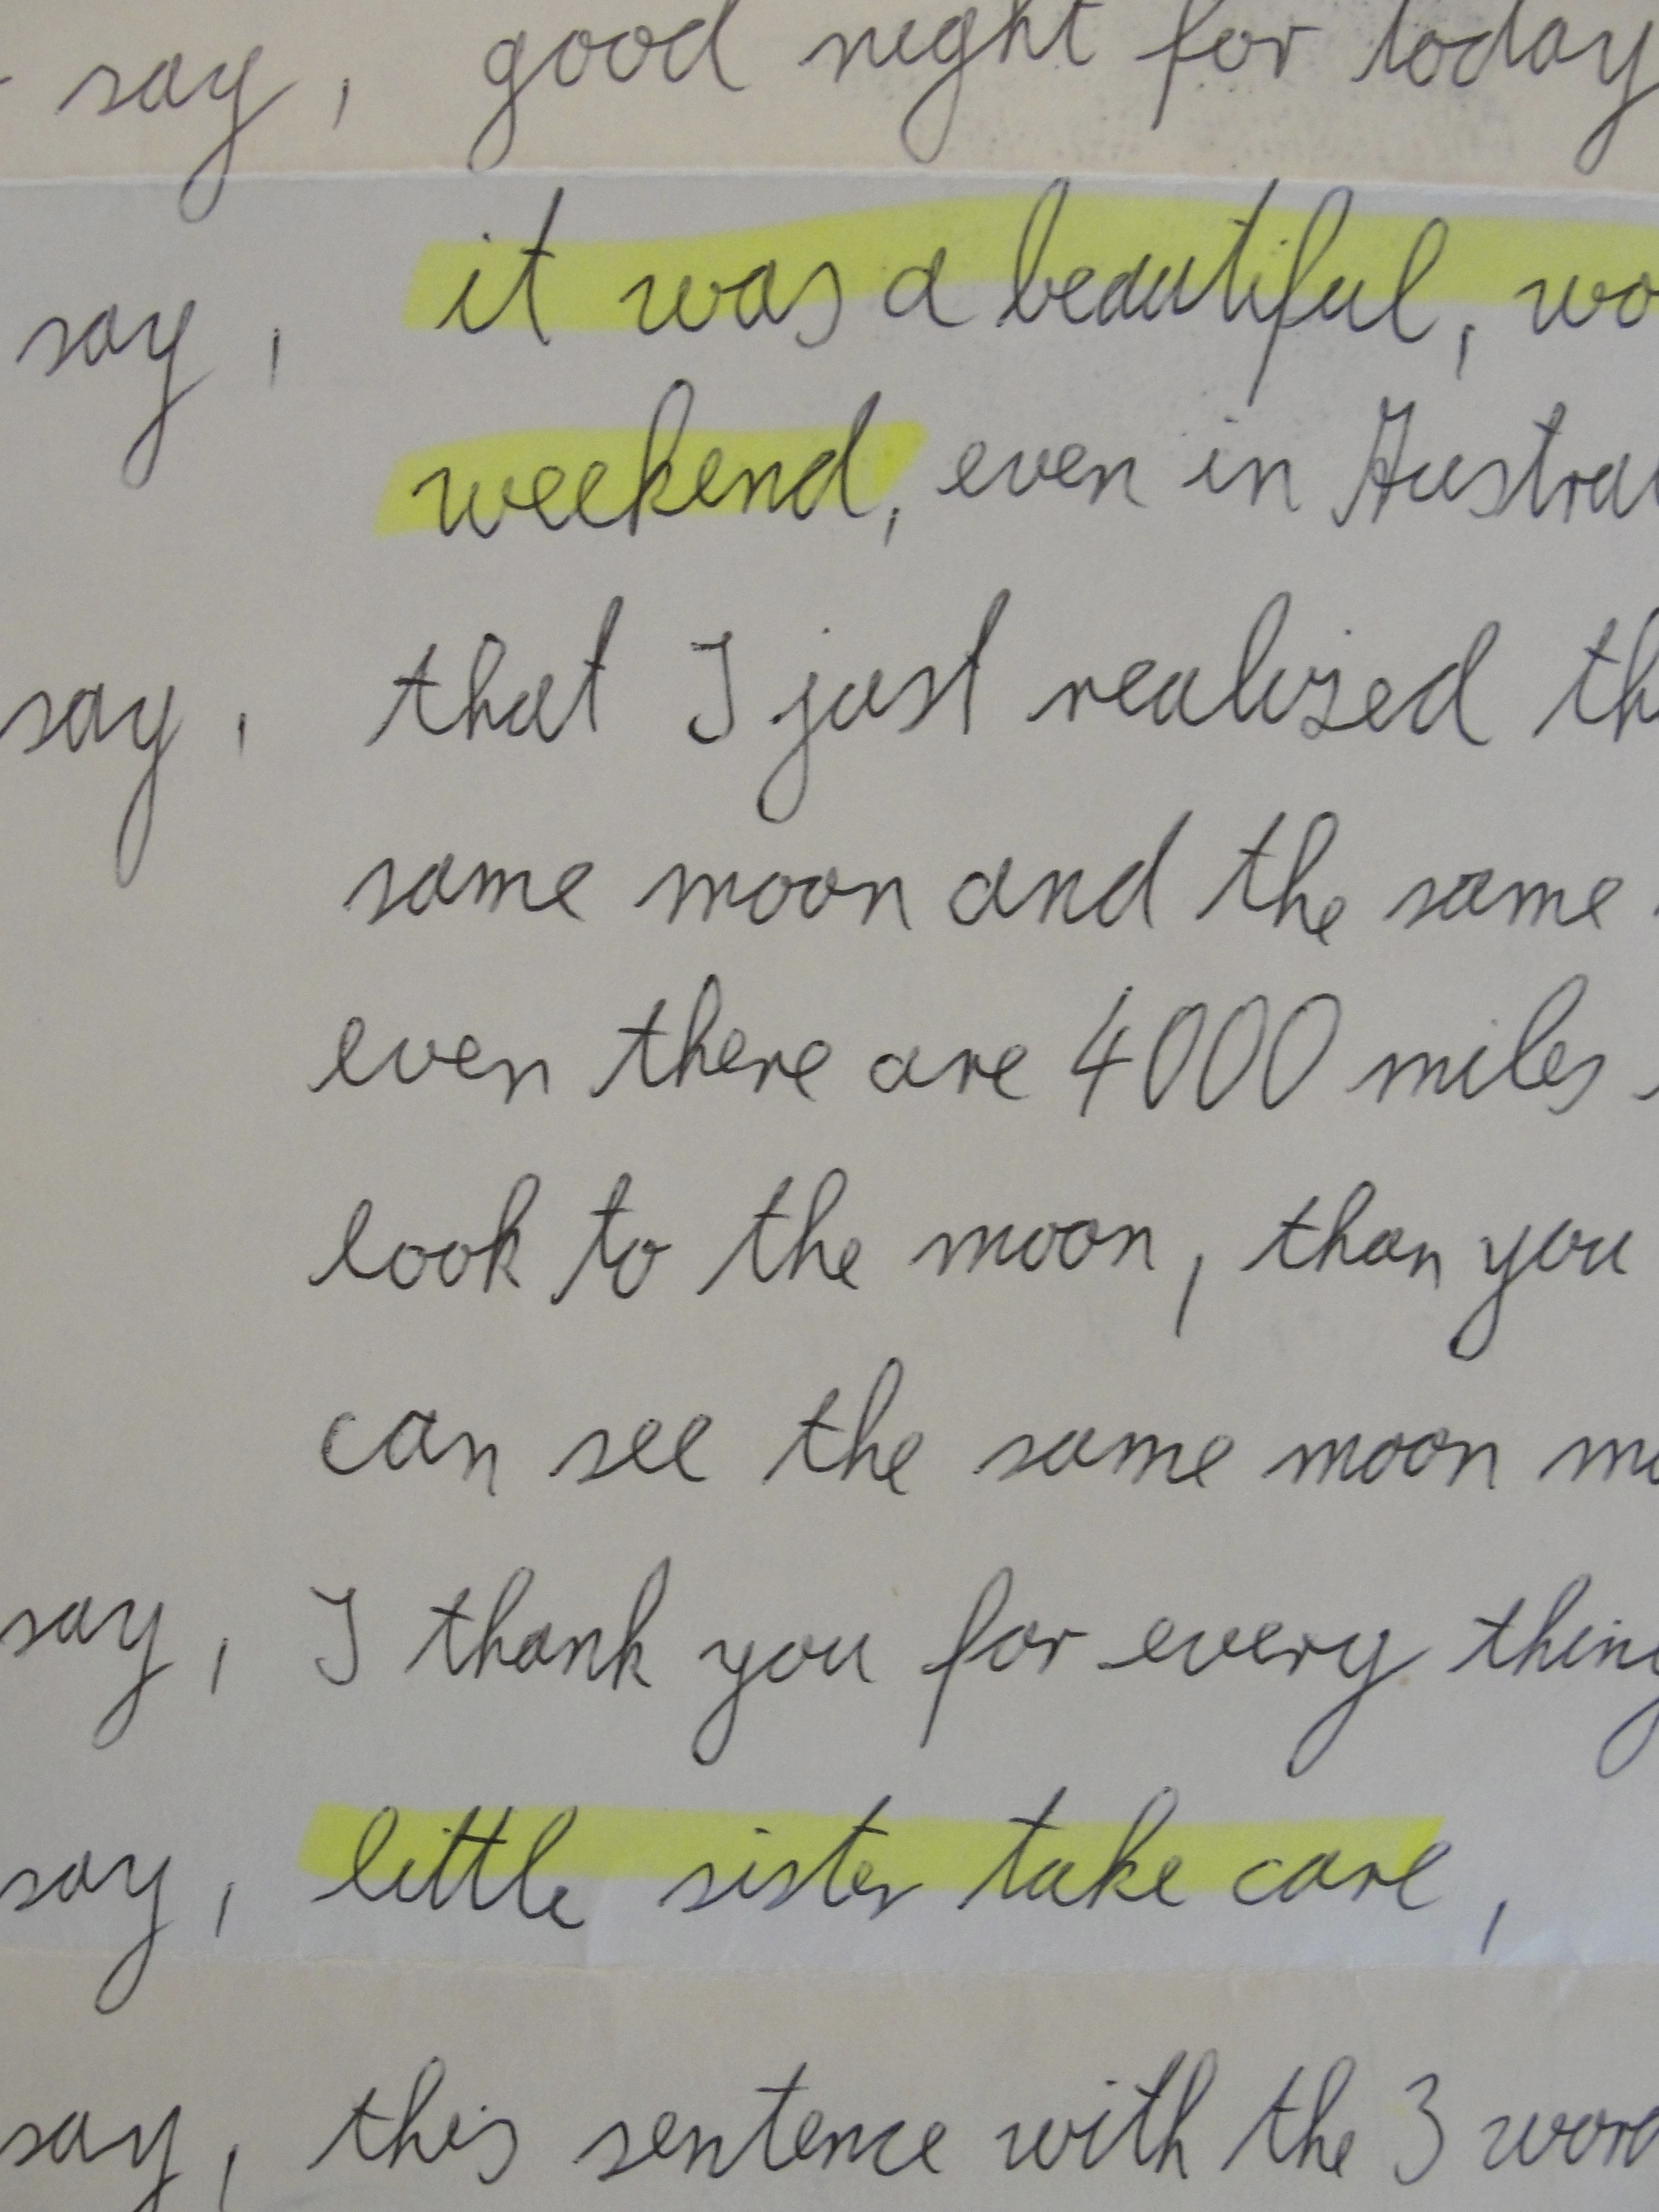 say, good night for today
say, it was a beautiful, wo
weekend, even in Austral
say, that I just realized th
same moon and the same
even there are 4000 miles
look to the moon, than you
can see the same moon
say, I thank you for every thing
say, little sister take care,
say, this sentence with the 3 word